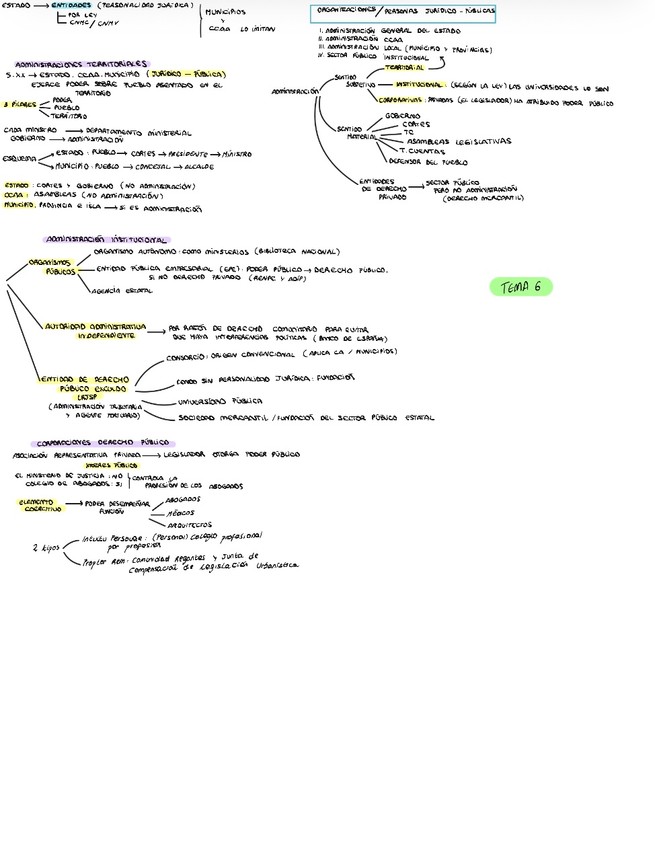 ESTADO → ENTIDADES (PERSONALIDAD JURÍDICA)
POR LEY
CNMC / CNMV
MUNICIPIOS
Y
CCAA LO IMITAN
ORGANIZACIONES / PERSONAS JURÍDICO - PÚBLICAS
I. ADMINISTRACIÓN GENERAL DEL ESTADO
II. ADMINISTRACIÓN CCAA
III. ADMINISTRACIÓN LOCAL (MUNICIPIO Y PROVINCIAS)
IV. SECTOR PÚBLICO INSTITUCIONAL
ADMINISTRACIÓN
SENTIDO
SUBJETIVO
TERRITORIAL
INSTITUCIONAL: (SEGÚN LA LEY) LAS UNIVERSIDADES LO SON
CORPORATIVAS: PRIVADAS (EL LEGISLADOR) HA ATRIBUIDO PODER PÚBLICO
SENTIDO
MATERIAL
GOBIERNO
CORTES
TC
ASAMBLEAS LEGISLATIVAS
T. CUENTAS
DEFENSOR DEL PUEBLO
ENTIDADES
DE DERECHO
PRIVADO
→ SECTOR PÚBLICO
PERO NO ADMINISTRACIÓN
(DERECHO MERCANTIL)
ADMINISTRACIONES TERRITORIALES
S. XX → ESTADO. CCAA. MUNICIPIO (JURÍDICO - PÚBLICA)
EJERCE PODER SOBRE PUEBLO ASENTADO EN EL
TERRITORIO
3 PILARES
PODER
PUEBLO
TERRITORIO
CADA MINISTRO → DEPARTAMENTO MINISTERIAL
GOBIERNO → ADMINISTRACIÓN
ESQUEMA
ESTADO: PUEBLO → CORTES → PRESIDENTE → MINISTRO
MUNICIPIO: PUEBLO → CONCEJAL → ALCALDE
ESTADO: CORTES Y GOBIERNO (NO ADMINISTRACIÓN)
CCAA: ASAMBLEAS (NO ADMINISTRACIÓN)
MUNICIPIO, PROVINCIA E ISLA → SI ES ADMINISTRACIÓN
ADMINISTRACIÓN INSTITUCIONAL
ORGANISMOS
PÚBLICOS
ORGANISMO AUTÓNOMO: COMO MINISTERIOS (BIBLIOTECA NACIONAL)
ENTIDAD PÚBLICA EMPRESARIAL (EPE): PODER PÚBLICO → DERECHO PÚBLICO.
SI NO DERECHO PRIVADO (RENFE Y ADIF)
AGENCIA ESTATAL
TEMA 6
AUTORIDAD ADMINISTRATIVA
INDEPENDIENTE
→ POR RAZÓN DE DERECHO COMUNITARIO PARA EVITAR
QUE HAYA INTERFERENCIAS POLÍTICAS (BANCO DE ESPAÑA)
ENTIDAD DE DERECHO
PÚBLICO EXCLUIDO
LRJSP
(ADMINISTRACIÓN TRIBUTARIA
Y AGENTE TRIBUTARIO)
CONSORCIO: ORIGEN CONVENCIONAL (APLICA CA / MUNICIPIOS)
FONDO SIN PERSONALIDAD JURÍDICA: FUNDACIÓN
UNIVERSIDAD PÚBLICA
SOCIEDAD MERCANTIL / FUNDACIÓN DEL SECTOR PÚBLICO ESTATAL
CORPORACIONES DERECHO PÚBLICO
ASOCIACIÓN REPRESENTATIVA PRIVADA → LEGISLADOR OTORGA PODER PÚBLICO
INTERÉS PÚBLICO
EL MINISTERIO DE JUSTICIA: NO
COLEGIO DE ABOGADOS: SI
CONTROLA LA
PROFESIÓN DE LOS ABOGADOS
ELEMENTO
COERCITIVO
→ PODER DESEMPEÑAR
FUNCIÓN
ABOGADOS
MÉDICOS
ARQUITECTOS
2 tipos
Intuitu Personae: (Personal) Colegio profesional
por profesión
Propter Rem: Comunidad Regantes y Junta de
Compensación de Legislación Urbanística